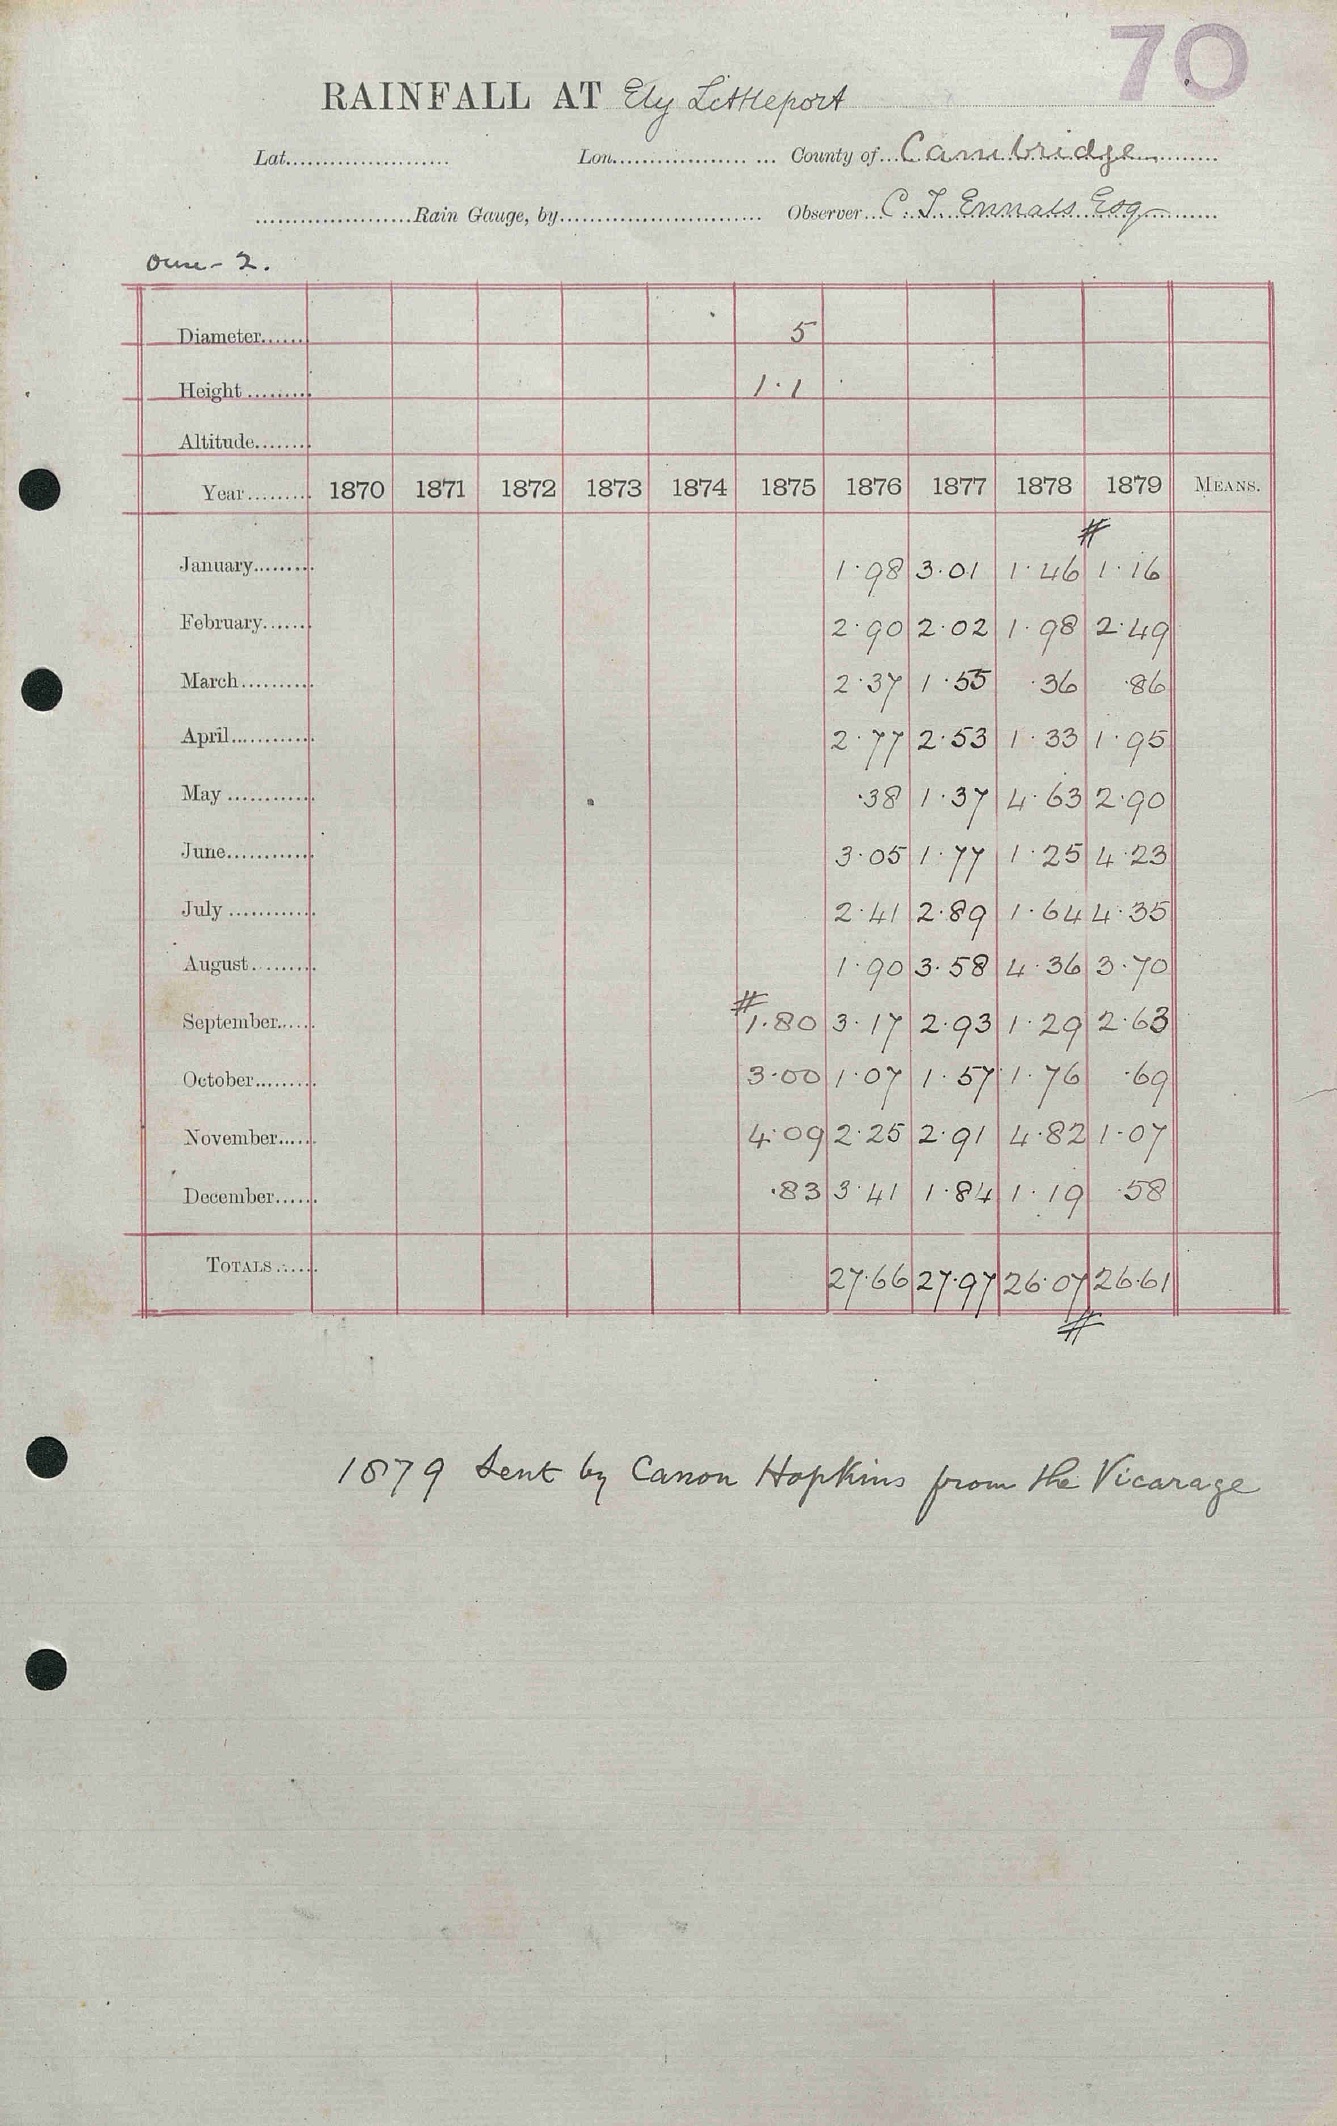 70
RAINFALL AT Ely Littleport
Lat...................... Lon................. ... County of...Cambridge..........
.....................Rain Gauge, by............................ Observer...C. T. Ennals Esq..........
Ouse - 2.
Diameter...... 5
Height ......... 1.1
Altitude........
Year......... 1870 1871 1872 1873 1874 1875 1876 1877 1878 1879 MEANS.
#
January......... 1.98 3.01 1.46 1.16
February....... 2.90 2.02 1.98 2.49
March.......... 2.37 1.55 .36 .86
April............ 2.77 2.53 1.33 1.95
May ............ .38 1.37 4.63 2.90
June............ 3.05 1.77 1.25 4.23
July ............ 2.41 2.89 1.64 4.35
August......... 1.90 3.58 4.36 3.70
#
September...... 1.80 3.17 2.93 1.29 2.63
October......... 3.00 1.07 1.57 1.76 .69
November...... 4.09 2.25 2.91 4.82 1.07
December...... .83 3.41 1.84 1.19 .58
TOTALS ...... 27.66 27.97 26.07 26.61
#
1879 Sent by Canon Hopkins from the Vicarage